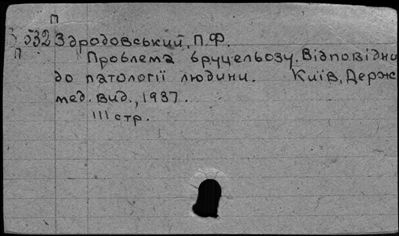 П
532 Здродовський, П.Ф.
П
Проблема бруцельозу. Відповідно
до патології людини. Київ, Держ.
мед. вид., 1937.
111 стр.